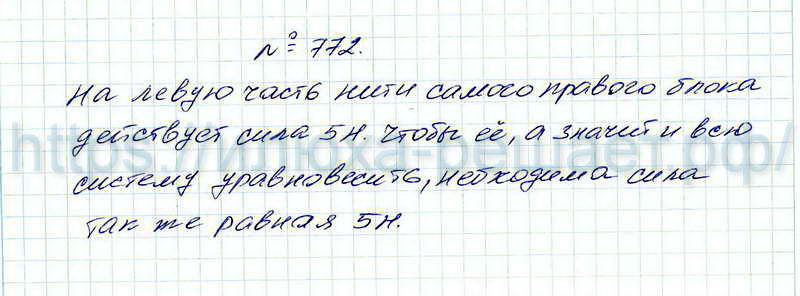 № 772.
На левую часть нити самого правого блока
действует сила 5Н. Чтобы её, а значит и всю
систему уравновесить, необходима сила
так же равная 5Н.